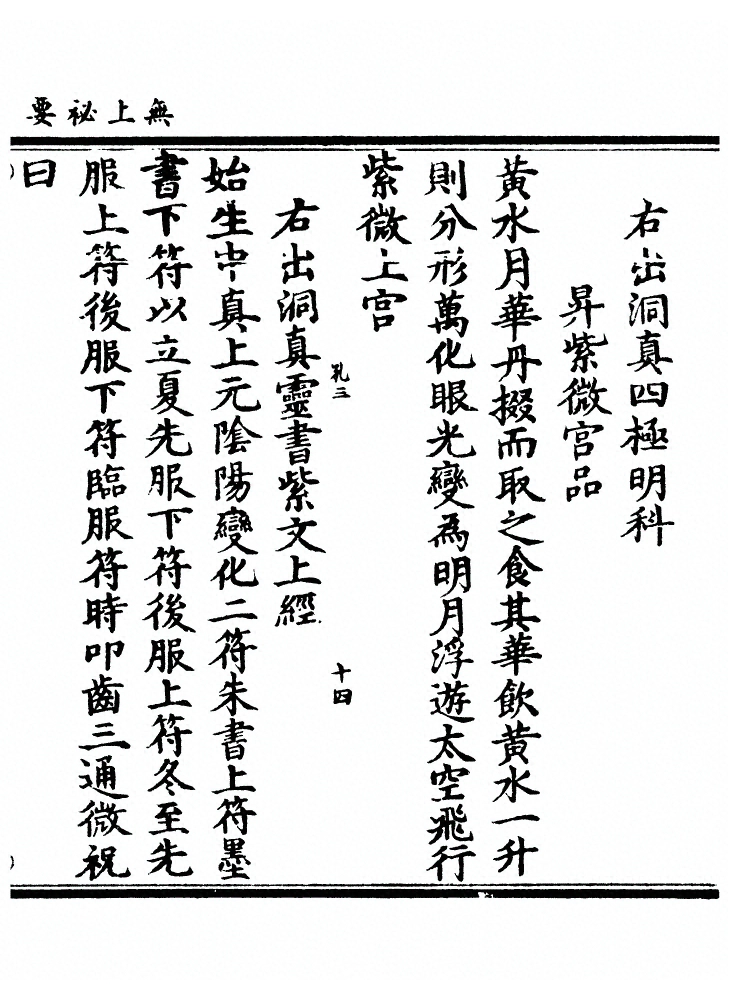 無上祕要
右出洞真四極明科
昇紫微宮品
黃水月華丹掇而取之食其華飲黃水一升
則分形萬化眼光變為明月浮遊太空飛行
紫微上宮
孔三
十四
右出洞真靈書紫文上經
始生中真上元陰陽變化二符朱書上符墨
書下符以立夏先服下符後服上符冬至先
服上符後服下符臨服符時叩齒三通微祝
曰